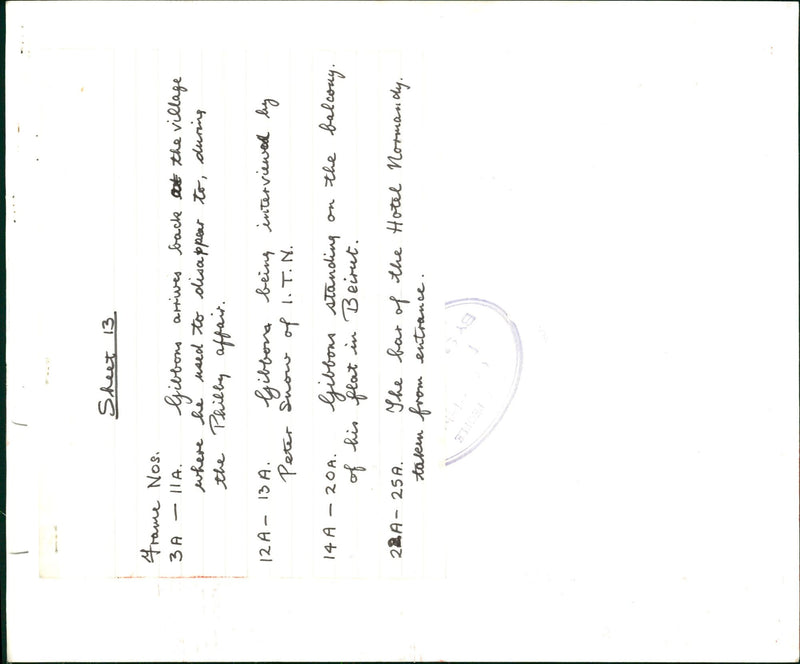 Sheet 13
Frame Nos.
3A — 11A. Gibbons arrives back at the village
where he used to disappear to, during
the Philby affair.
12A – 13A. Gibbons being interviewed by
Peter Snow of I.T.N.
14A – 20A. Gibbons standing on the balcony.
of his flat in Beirut.
22A – 25A. The bar of the Hotel Normandy.
taken from entrance.